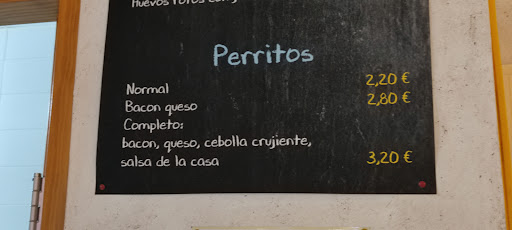 Huevos rotos con
Perritos
Normal 2,20 €
Bacon queso 2,80 €
Completo:
bacon, queso, cebolla crujiente,
salsa de la casa 3,20 €